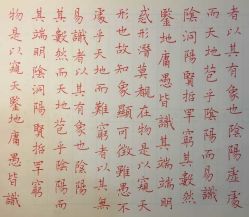 物是以窺天鑒地庸愚皆識
其端明陰洞陽賢哲罕窮
其數然而天地苞乎陰陽而
易識者以其有象也陰陽
處乎天地而難窮者以其無
形也故知象顯可徵雖愚不
惑形潛莫覩在物是以窺天
鑒地庸愚皆識其端端明
陰洞陽賢哲罕窮其數然
而天地苞乎陰陽而易識
者以其有象也陰陽處